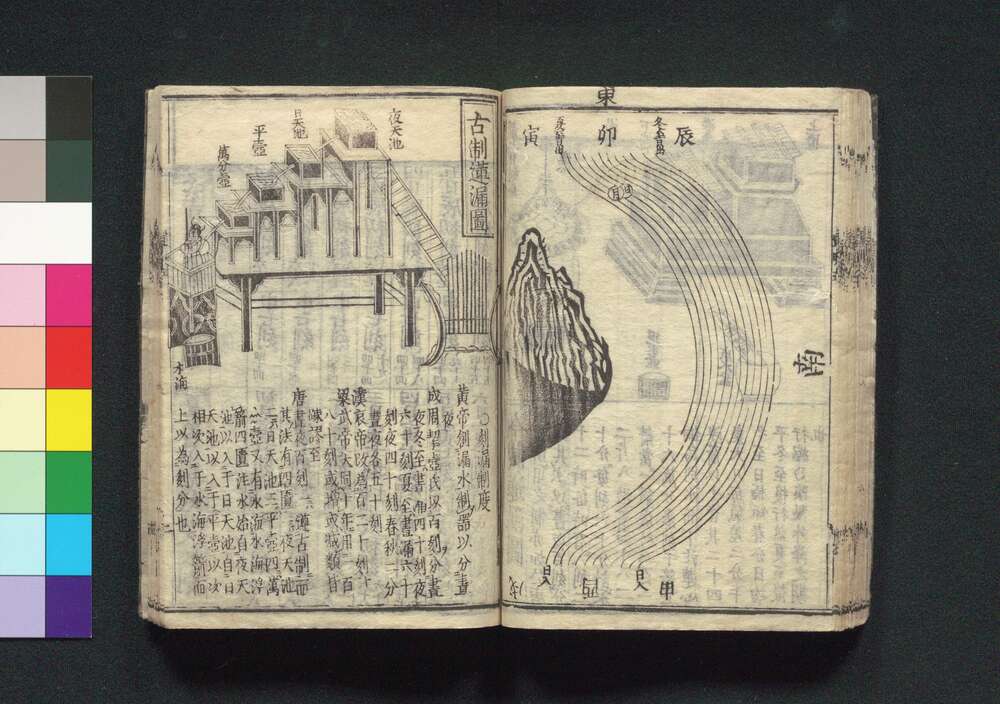 東
辰
冬至
卯
寅
日
月
南
申
日入
酉
日入
戌
古制遺漏圖
夜天池
日天池
平壺
萬分壺
水海
〇刻漏制度
黄帝創漏水制器以分晝
夜
成周挈壺氏以百刻分晝
夜冬至晝漏四十刻夜
六十刻夏至晝漏六十
刻夜四十刻春秋二分
晝夜各五十刻
漢哀帝改為百二十刻
梁武帝大同十年用一百
八十刻或增或減類皆
陳謬至
唐晝夜百刻一遵古制而
其法有四匱一夜天池
二日天池三平壺四萬
分壺又有水海水海浮
箭四匱注水始自夜天
池以入于日天池自日
天池以入于平壺以次
相次入于水海浮箭而
上以為刻分也